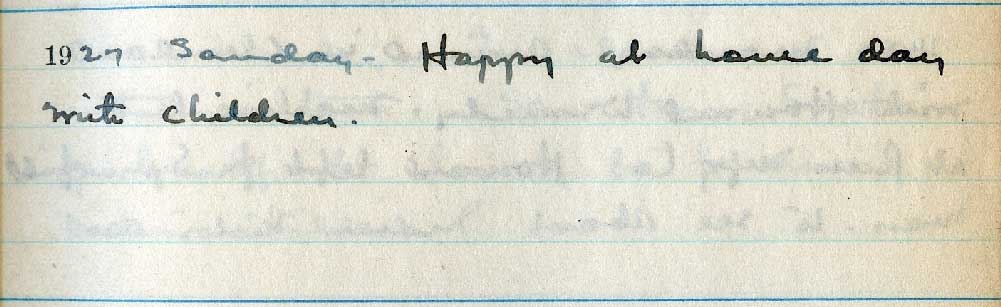 1927 Sunday - Happy at home day
with children.